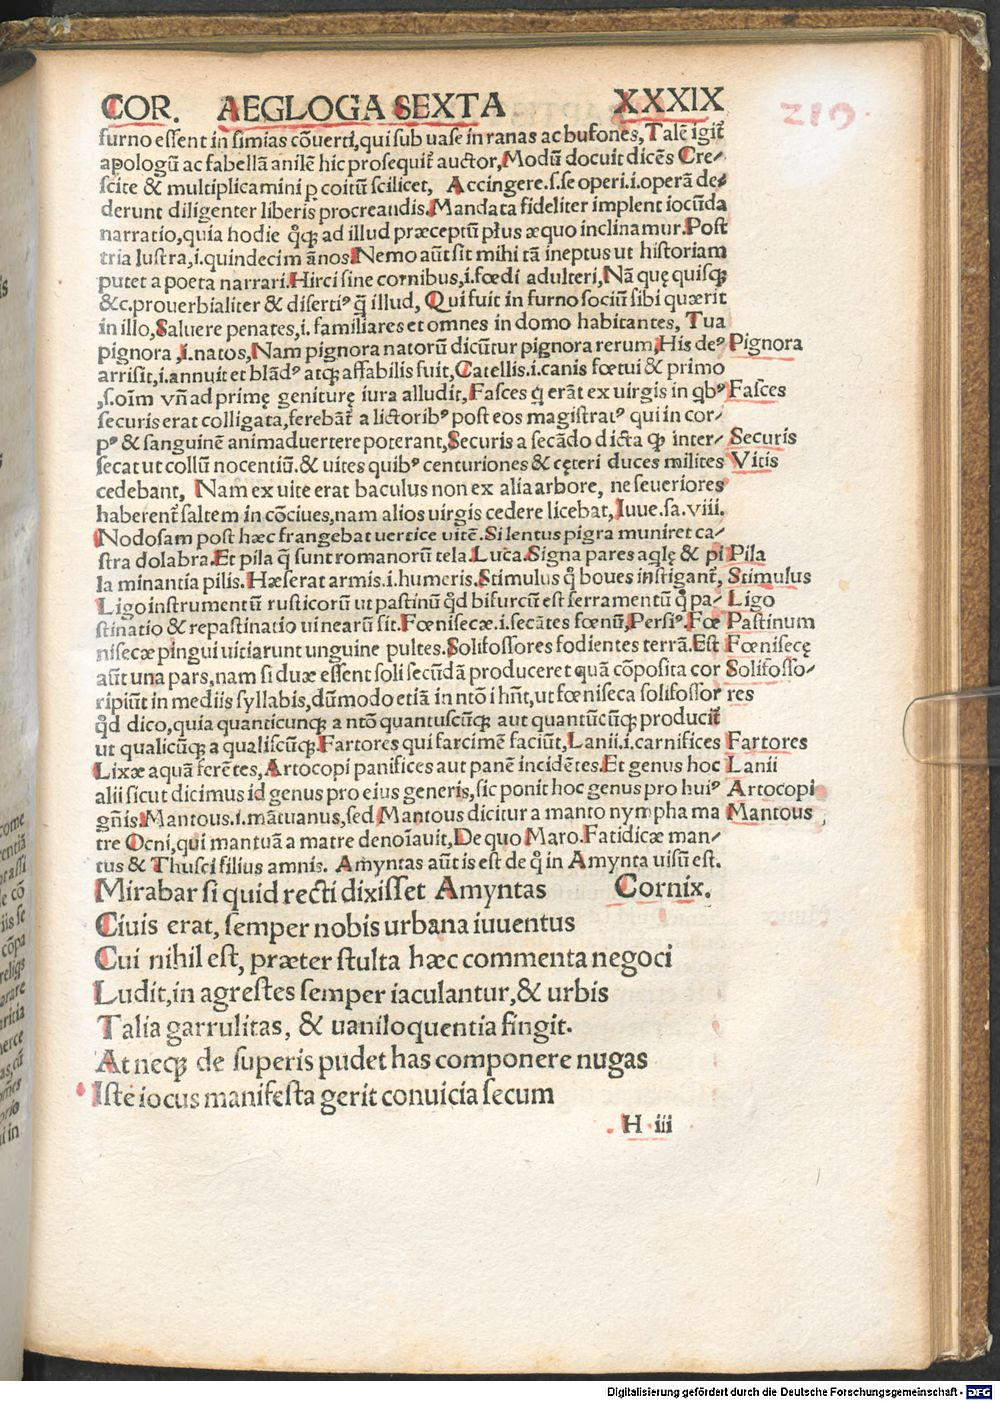 COR. AEGLOGA SEXTA XXXIX
210.
furno essent in simias cõuerti, qui sub uase in ranas ac bufones, Talẽ igit̃
apologũ ac fabellã anilẽ hic prosequit̃ auctor, Modũ docuit dicẽs Cre-
scite & multiplicamini p coitũ scilicet, Accingere.s.se operi.i.operã de-
derunt diligenter liberis procreandis. Mandata fideliter implent iocũda
narratio, quia hodie qq; ad illud præceptũ plus æquo inclinamur. Post
tria lustra,.i.quindecim ãnos. Nemo aũt sit mihi tã ineptus ut historiam
putet a poeta narrari. Hirci sine cornibus,.i.fœdi adulteri, Nã quę quisq;
&c. prouerbialiter & disertiꝰ q̃ illud, Qui fuit in furno sociũ sibi quærit
in illo, Saluere penates,.i. familiares et omnes in domo habitantes, Tua
pignora,.i.natos, Nam pignora natorũ dicũtur pignora rerum, His deꝰ Pignora
arrisit,.i.annuit et blãdꝰ atq; affabilis fuit, Catellis.i.canis fœtui & primo
,s.oĩm vñ ad primę geniturę iura alludit, Fasces q̃ erãt ex uirgis in qbꝰ Fasces
securis erat colligata, ferebãt̃ a lictoribꝰ post eos magistratꝰ qui in cor-
pꝰ & sanguinẽ animaduertere poterant, Securis a secãdo dicta q; inter- Securis
secat ut collũ nocentiũ. & uites quibꝰ centuriones & cęteri duces milites Vitis
cedebant, Nam ex uite erat baculus non ex alia arbore, ne seueriores
haberent̃ saltem in cõciues, nam alios uirgis cedere licebat, Iuue.sa.viii.
Nodosam post hæc frangebat uertice vitẽ. Si lentus pigra muniret ca-
stra dolabra. Et pila q̃ sunt romanorũ tela. Luca. Signa pares aqlę & pi Pila
la minantia pilis. Hæserat armis.i.humeris. Stimulus q̊ boues instigant̃, Stimulus
Ligo instrumentũ rusticorũ ut pastinũ qd bifurcũ est ferramentũ q̊ pa- Ligo
stinatio & repastinatio uinearũ sit. Fœnisecæ.i.secãtes fœnũ, Persiꝰ. Fœ Pastinum
nisecæ pingui uitiarunt unguine pultes. Solifossores fodientes terrã. Est Fœnisecę
aũt una pars, nam si duæ essent soli secũdã produceret quã cõposita cor Solifosso-
ripiũt in mediis syllabis, dũmodo etiã in ntõ i hñt, ut fœniseca solifossor res
qd dico, quia quanticunq; a ntõ quantuscũq; aut quantũcũq; producit̃
ut qualicũq; a qualiscũq;. Fartores qui farcimẽ faciũt, Lanii.i.carnifices Fartores
Lixæ aquã ferẽtes, Artocopi panifices aut panẽ incidẽtes. Et genus hoc Lanii
alii sicut dicimus id genus pro eius generis, sic ponit hoc genus pro huiꝰ Artocopi
gñis. Mantous.i.mãtuanus, sed Mantous dicitur a manto nympha ma Mantous
tre Ocni, qui mantuã a matre denoĩauit, De quo Maro. Fatidicæ man-
tus & Thusci filius amnis. Amyntas aũt is est de q̊ in Amynta uisũ est.
Mirabar si quid recti dixisset Amyntas Cornix.
Ciuis erat, semper nobis urbana iuuentus
Cui nihil est, præter stulta hæc commenta negoci
Ludit, in agrestes semper iaculantur, & urbis
Talia garrulitas, & uaniloquentia fingit.
At neq; de superis pudet has componere nugas
Iste iocus manifesta gerit conuicia secum
H iii
Digitalisierung gefördert durch die Deutsche Forschungsgemeinschaft - DFG